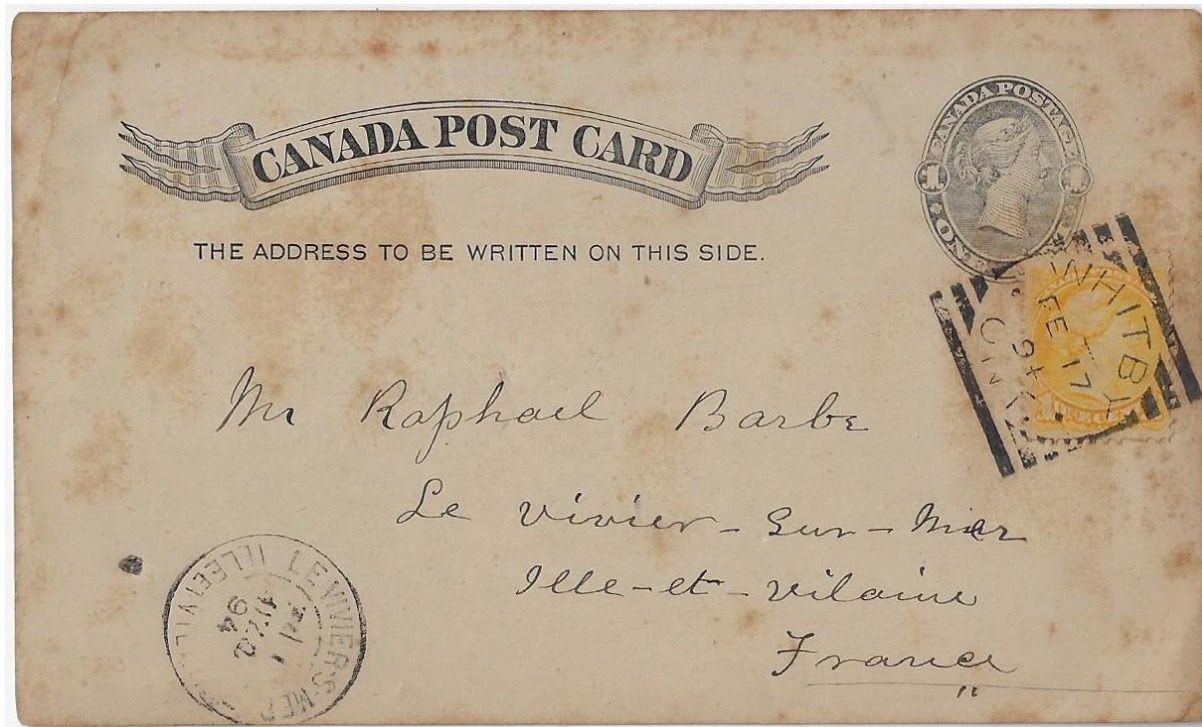 CANADA POST CARD
CANADA POSTAGE
1 1
ONE
THE ADDRESS TO BE WRITTEN ON THIS SIDE.
WHITBY
FE 17
94
ONT.
Mr Raphael Barbe
Le Vivier-Sur-Mer
Ille-et-Vilaine
France
LE VIVIER-S-MER
ILLE ET VIL
94